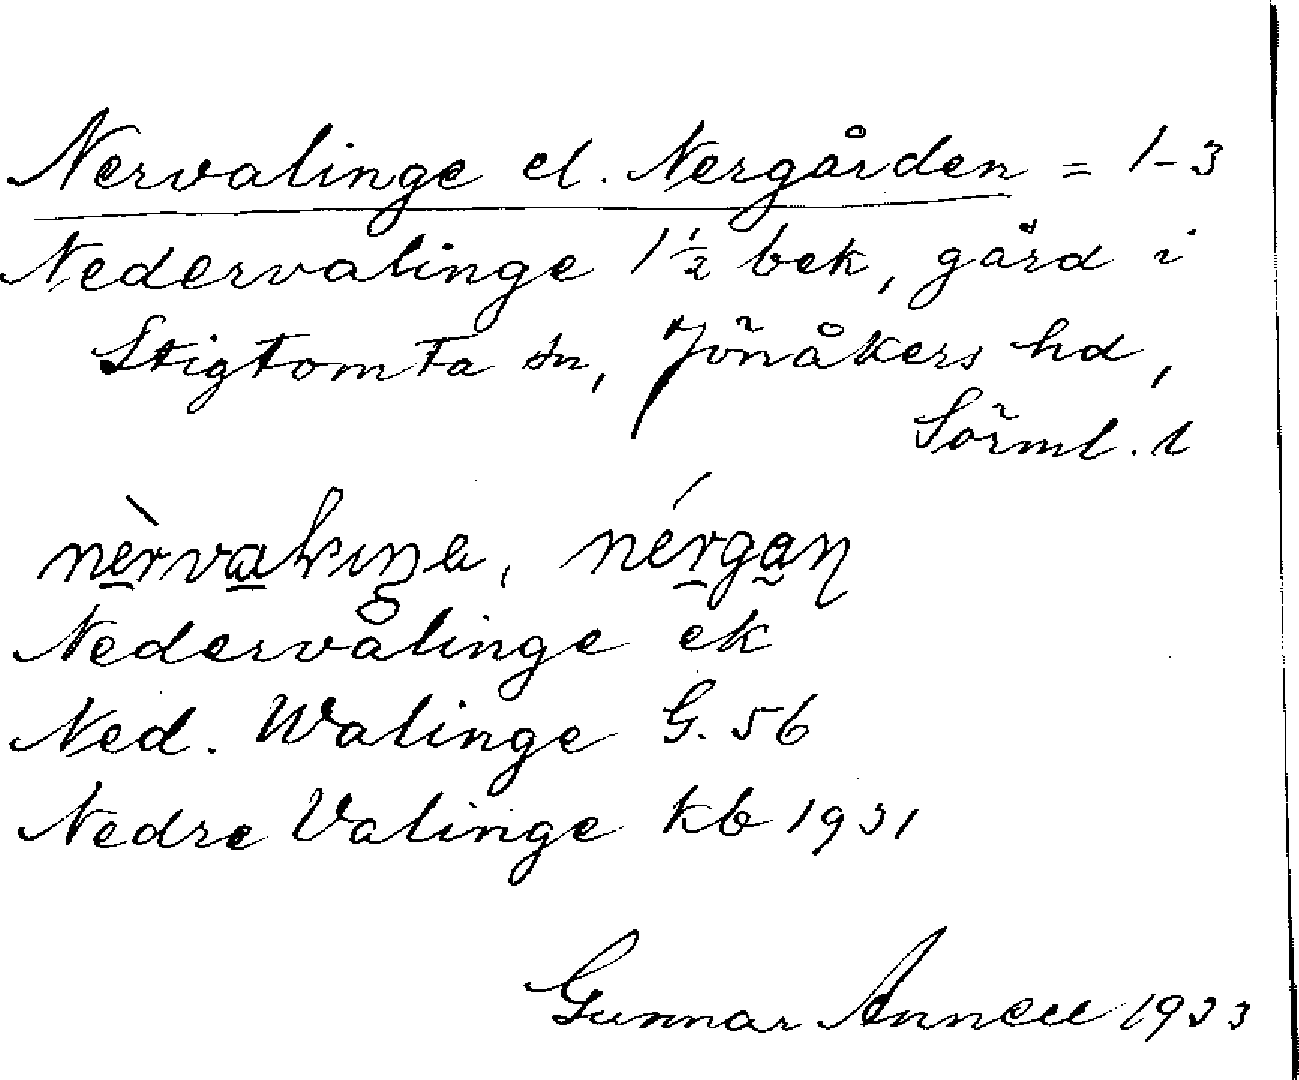 Nervalinge el. Nergården = 1-3
Nedervalinge 1½ bek, gård i
Stigtomta sn, Jönåkers hd,
Sörml. l
Nedervålinge ek
Ned. Walinge G. 56
Nedre Valinge kb 1931
Gunnar Annell 1933